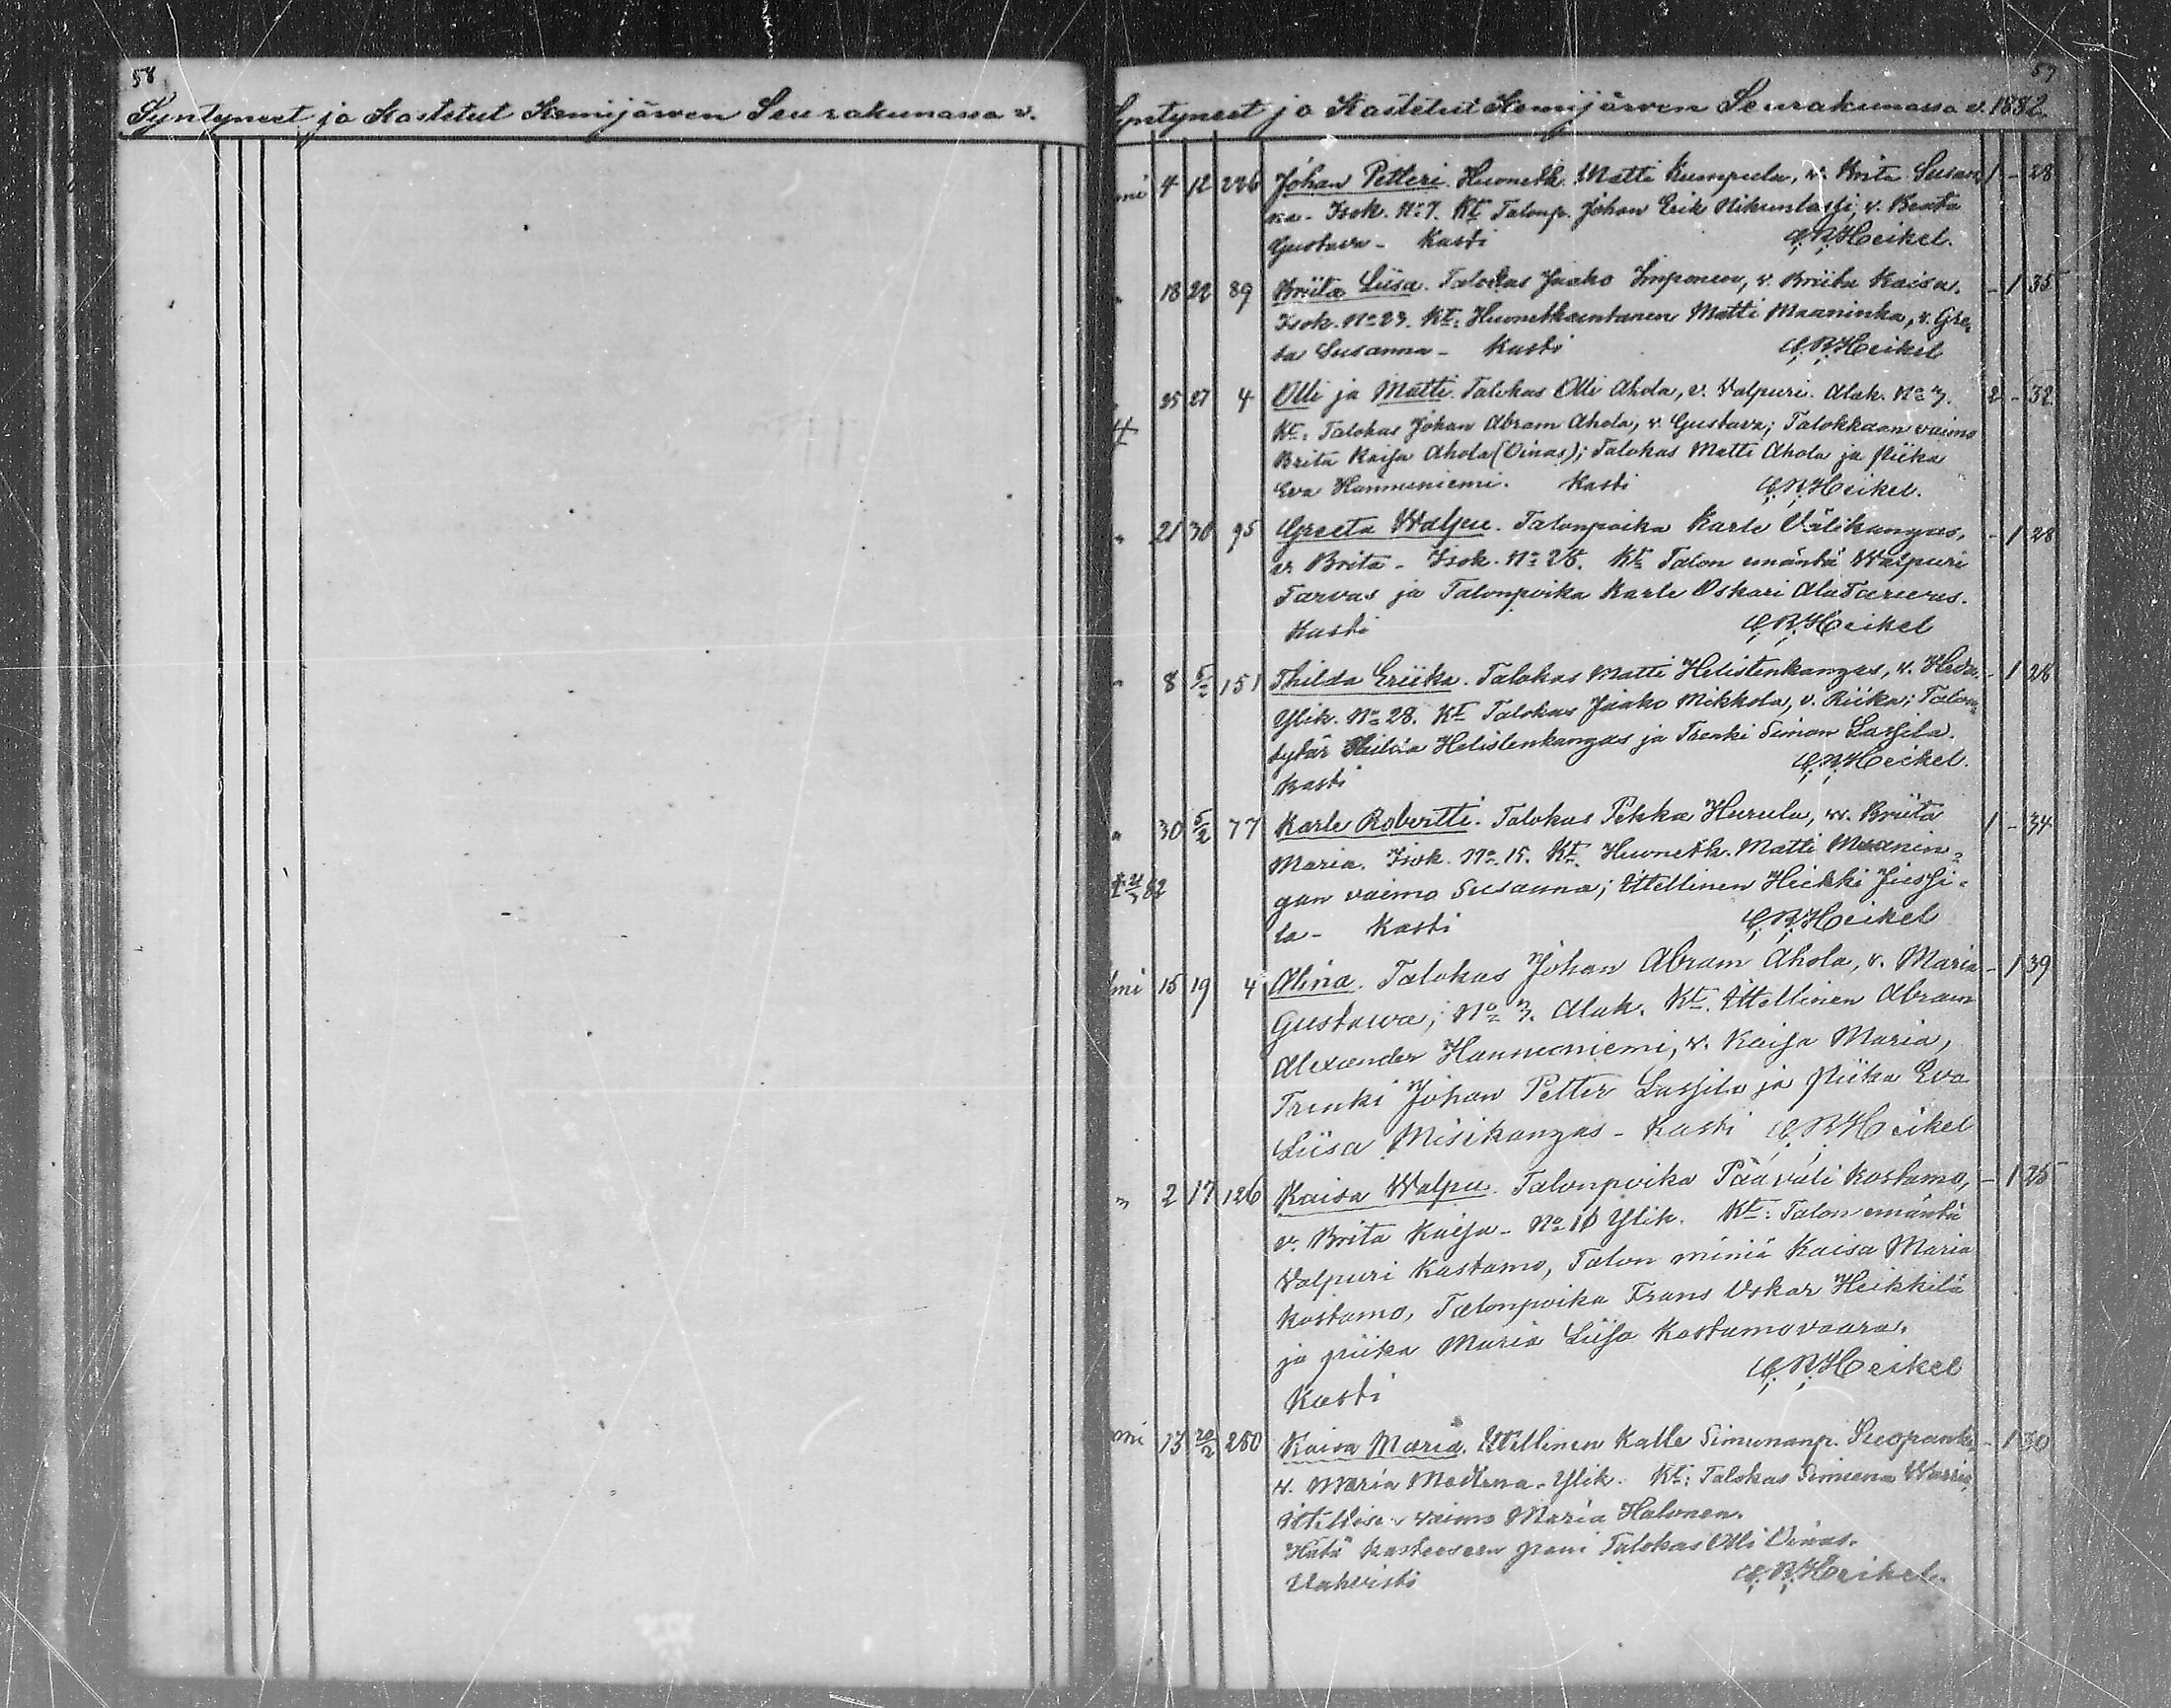 58
Syntyneet ja Kastetut Kemijärven Seurakunnassa v.
57
Syntyneet ja Kastetut Kemijärven Seurakunnassa v. 1882.
mi 4 12 226 Johan Petteri. Huonetk. Matti Kumpula, v. Brita Susan 1 - 28
na - Isok. No 7. Kt Talonp. Johan Erik v. Beata
Gustava - Kasti C. R. Heikel.
" 18 22 89 Briita Liisa. Talokas Jaako Imponen, v. Briita Kaisa. - 1 35
Isok. No 23. Kt: Huonetkuntanen Matti Maaninka, v. Gre=
ta Susanna - Kasti C. R. Heikel
25 27 4 Olli ja Matti. Talokas Olli Ahola, v. Valpuri. Alak. No 3. 2 - 32
Kt: Talokas Johan Abram Ahola, v. Gustava; Talokkaan vaimo
Brita Kaisa Ahola (Oinas); Talokas Matti Ahola ja piika
Eva Hannuniemi. Kasti C. R. Heikel.
" 21 30 95 Greeta Walpu. Talonpoika Karle Välikangas, - 1 28
v. Brita - Isok. No 28. Kt Talon emäntä Walpuri
Tarvas ja Talonpoika Karle Oskari AlaTarvas.
Kasti C. R. Heikel
" 8 5/2 151 Thilda Eriika. Talokas Matti Helistenkangas, v. Heda. - 1 26
Ylik. No 28. Kt Talokas Jaako Mikkola, v. Riika; Talon=
tytär Helistenkangas ja Trenki Simon Lassila.
Kasti C. R. Heikel.
" 30 5/2 77 Karle Robertti. Talokas Pekka Hurula, v. Briita 1 - 34
Maria. Isok. No 15. Kt. Huonetk. Matti Maanin=
82 gan vaimo Susanna; Ittellinen Heikki Jussi=
la - Kasti C. R. Heikel
mi 15 19 4 Alina. Talokas Johan Abram Ahola, v. Maria - 1 39
Gustava; No 3. Alak. Kt. Ittellinen Abram
Alexander Hannuniemi, v. Kaisa Maria,
Trenki Johan Petter Lassila ja piika Eva
Liisa Misikangas - Kasti C. R. Heikel
" 2 17 126 Kaisa Walpu. Talonpoika Paavali Kostamo, - 1 25
v. Brita Kaisa - No 10 Ylik. Kt: Talon emäntä
Valpuri Kostamo, Talon miniä Kaisa Maria
Kostamo, Talonpoika Frans Oskar Heikkilä
ja piika Maria Liisa Kostamovaara.
Kasti C. R. Heikel
mi 13 20/2 280 Kaisa Maria. Ittellinen Kalle Simunanp. - 1 30
v. Maria - Ylik. Kt: Talokas Simuna Warrio,
Ittellisen vaimo Maria Halonen.
Hätä kasteeseen pani Talokas Olli Oinas.
Vahvisti C. R. Heikel.